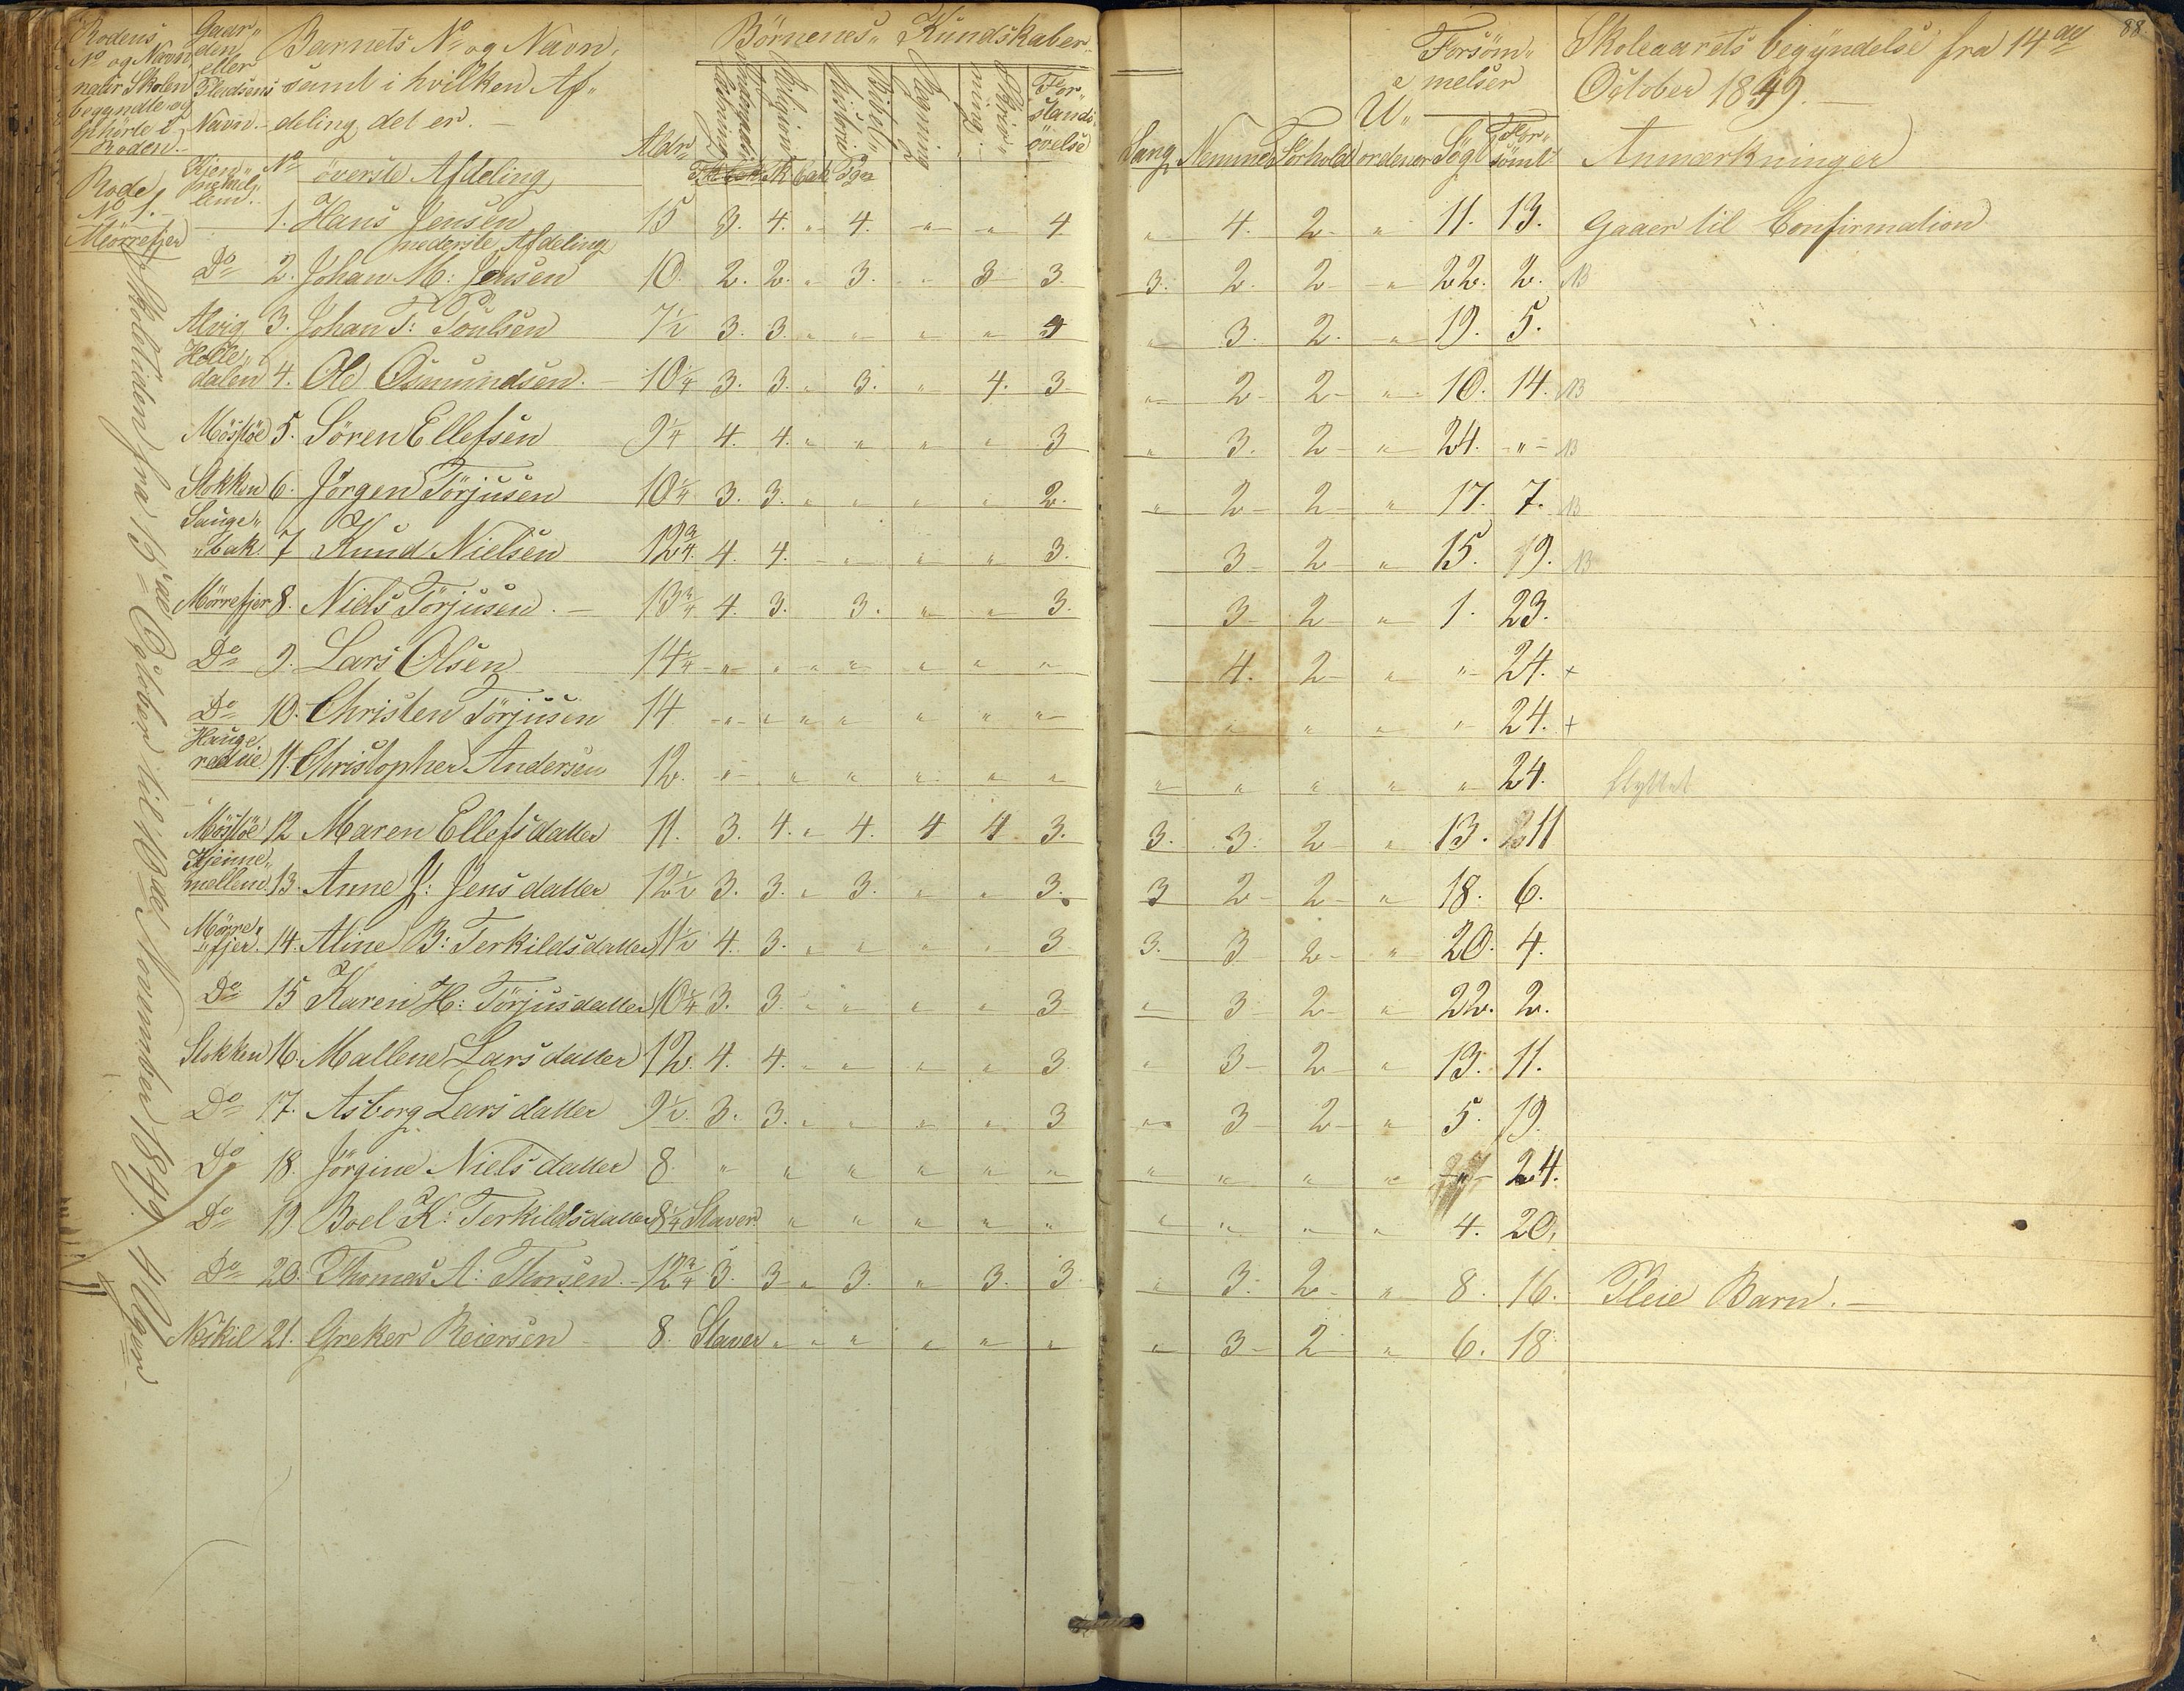 Rodens Nº og Navn naar Skolen begyndte og ophörte i Roden.
Gaardens eller Pladsens Navn.
Barnets Nº og Navn, samt i hvilken Afdeling det er.
Aldr
Börnenes Kundskaber
Religion
Bibelhistorie
Regning
Skrivning
Forstandsövelse
Sang
Nemme
Forhold
Uordener
Forsömmelser
Sögt
Forsömt
Skoleaarets begyndelse fra 14de October 1849.
88
Anmærkninger
Rode Nº 1. Mörrefjer
Skoletiden fra 15de October til 10de November 1849, 4 Uger
Nº överste Afdeling
1. Hans Jensen 15 3. 4. " 4. " " 4 " 4. 2 " 11. 13. Gaaer til Confirmation
nederste Afdeling
Do 2. Johan M: Jensen 10. 2. 2. " 3. " 3 3. 3. 2. 2 " 22. 2. B
Alvig 3. Johan T: Poulsen 7½ 3. 3. " " " " 4 " 3. 2. " 19. 5.
Holledalen 4. Ole Osmundsen. 10¼ 3. 3. " 3. " 4. 3 " 2 2 " 10. 14. B
Möstöe 5. Sören Ellefsen 9¼ 4. 4. " " " " 3 " 3. 2 " 24. " B
Stokken 6. Jörgen Törjusen 10¼ 3. 3. " " " " 2. " 2 2 " 17. 7. B
Saugebak 7 Knud Nielsen 12¾ 4 4. " " " " 3. 3 2 " 15. 19. B
Mörrefjer 8. Niels Törjusen. 13¾ 4. 3. 3. " " 3. 3 2 " 1. 23.
Do 9. Lars Olsen 14¼ " " " " " " " 4. 2 " " 24. +
Do 10. Christen Törjusen 14 " " " " " " " " " " " 24. +
Haugeredne 11. Christopher Andersen 12. " " " " " " " " " " " 24. flyttet
Möstöe 12 Maren Ellefsdatter 11. 3. 4. " 4. 4 4 3. 3. 3. 2 " 13. 11
Kjennemellem 13. Anne J: Jensdatter 12½ 3. 3. " 3. " " 3. 3 2 2 " 18. 6.
Mörrefjer. 14. Aline B: Terkildsdatter 11½ 4. 3. " " " " 3 3. 3 2 " 20. 4.
Do 15 Karen H: Törjusdatter 10¼ 3. 3. " " " " 3 " 3 2 " 22. 2.
Stokken 16. Mallene Larsdatter 12. 4. 4. " " " " 3 " 3 2 " 13. 11.
Do 17. Asborg Larsdatter 9½ 3. 3. " " " " 3 " 3 2 " 5. 19.
Do 18. Jörgine Nielsdatter 8. " " " " " " " " " " " 24.
Do 19 Boel K: Terkildsdatter 8¼ Staver " " " " " " " " " 4. 20.
Do 20. Thomas A: Thorsen. 12¾ 3. 3 " 3. " 3. 3 " 3. 2 " 8. 16. Pleie Barn.
Neskil 21. Greker Reiersen 8. Staver " " " " " " " 3 2 " 6. 18